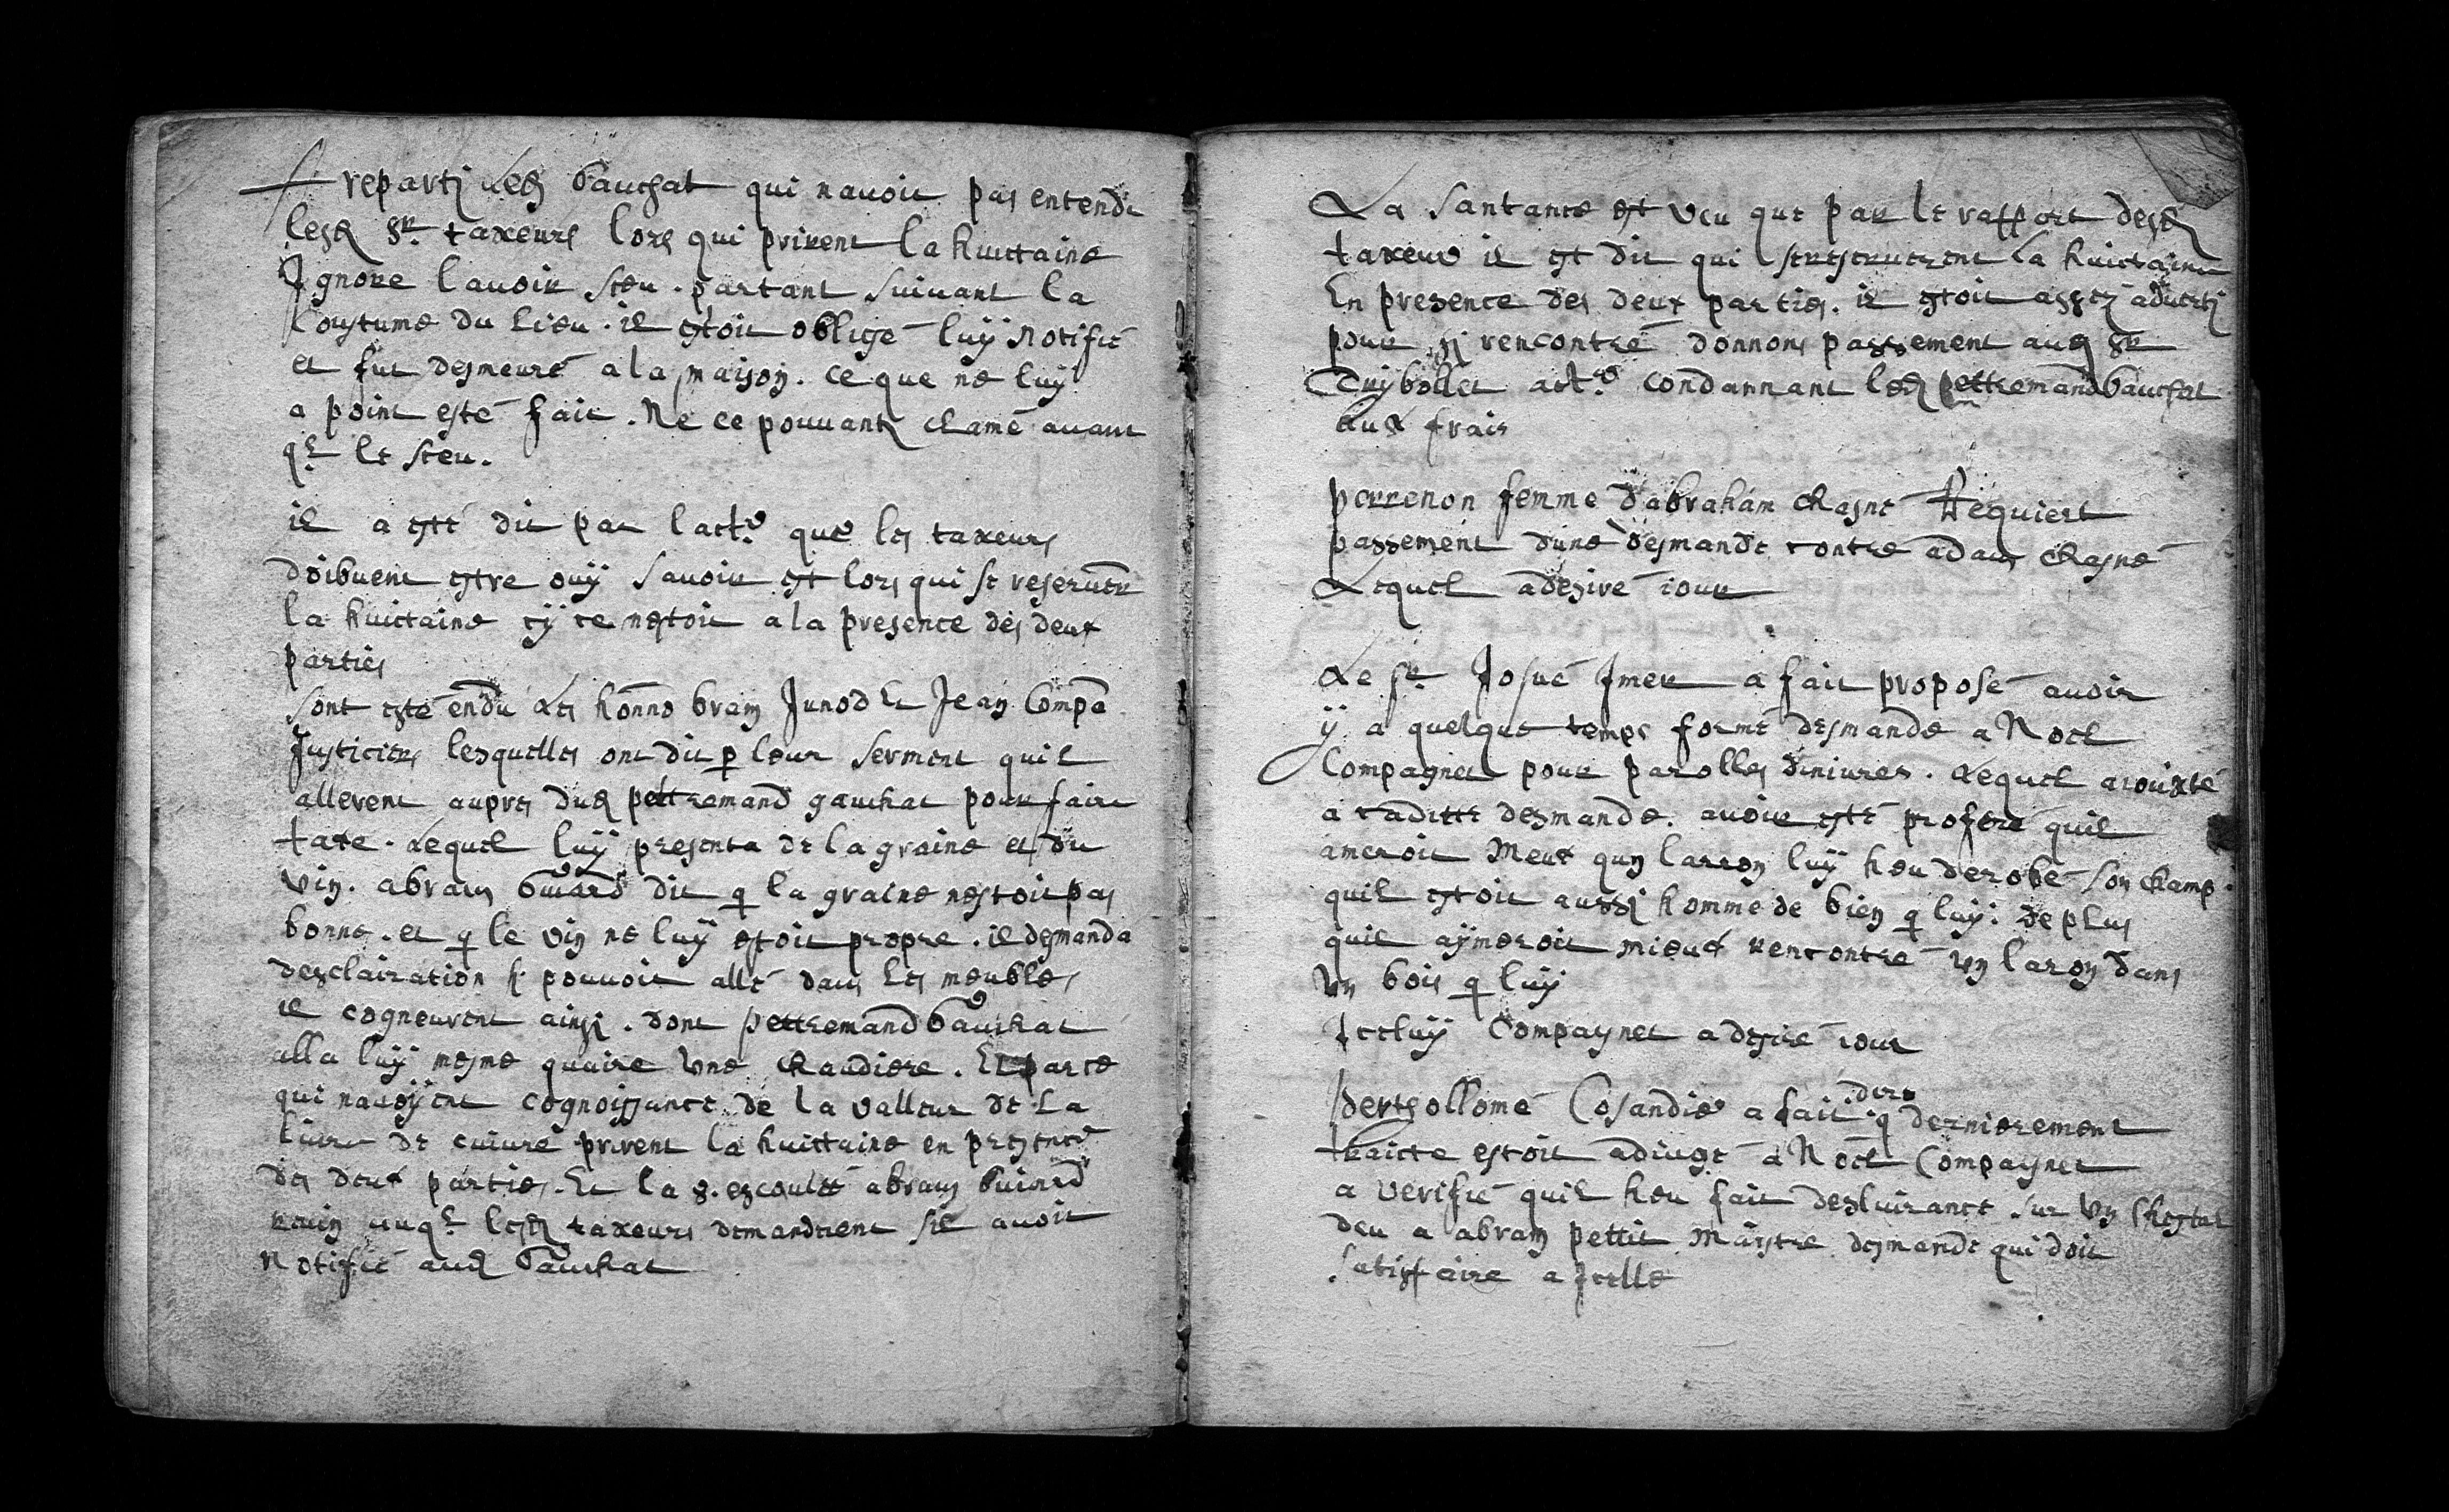 A reparti led Gauchat qui navoit pas entendu
lesd Sr. taxeurs lors qui prirent la huictaine
Ignore lavoir sceu. partant suivant la
Coustume du lieu. il estoit obligé luÿ notifié
et fut desmeuré a la maison. ce que ne luÿ
a point esté fait. Ne ce pouvant clamé avant
qe le sceu.
il a esté dit par lactr que les taxeurs
doibvent estre ouÿ savoir est lors qui se reserverent
la huictaine sÿ ce nestoit a la presence des deux
parties
Sont esté endu les honno bram Junod et Jean Compa
Justiciers lesquelles ont dit p leur serment quil
allerent aupres dud pettremand gauchat pour faire
taxe. Lequel luÿ presenta de la graine et du
vin. abram Guiard dit q la graine nestoit pas
bonne. et q le vin ne luÿ estoit propre. il demanda
desclairation pouvoir allé dans les meubles
il cogneurent ainsi. dont pettremand Gauchat
alla luÿ mesme quaire une chaudiere. Et parce
qui navoÿent cognoissance de la valleur de la
livre de cuivre prirent la huittaine en presence
des deux parties. Et la s. escoulée abram Guiard
lesd taxeurs demanderent sil avoit
Notifié aud Gauchat
La santance est veu que par le rapport desd
taxeur il est dit qui la huictaine
En presence des deux parties. il estoit assez adverti
pour sÿ rencontré donnons passement aud Sr
Cuÿbollet actr condamnant led pettremand Gauchat
aux frais
perrenon femme dabraham chasne Requiert
passement dune desmande contre adam chasne
Lequel a desiré iour
Le Sr. Josué Imer a fait proposé avoir
ÿ a quelque temps formé desmande a Noel
Compagnet pour parolles diniures. Lequel a iouxte
a caditte desmande. avoir esté proferé quil
ameroit Meux qun larron luÿ heu derobé son champ.
quil estoit aussi homme de bien q luÿ. De plus
quil aÿmeroit mieux rencontré un laron dans
un bois q luÿ
Iceluÿ Compagnet a desiré iour
Bertsollomé Cosandier a fait dire q dernierement
thaicte estoit adiugé a Noel Compagnet
a verifié quil heu fait desluirance sur un Chestal
deu a abram pettit Maistre desmande qui doit
Satisfaire a icelle